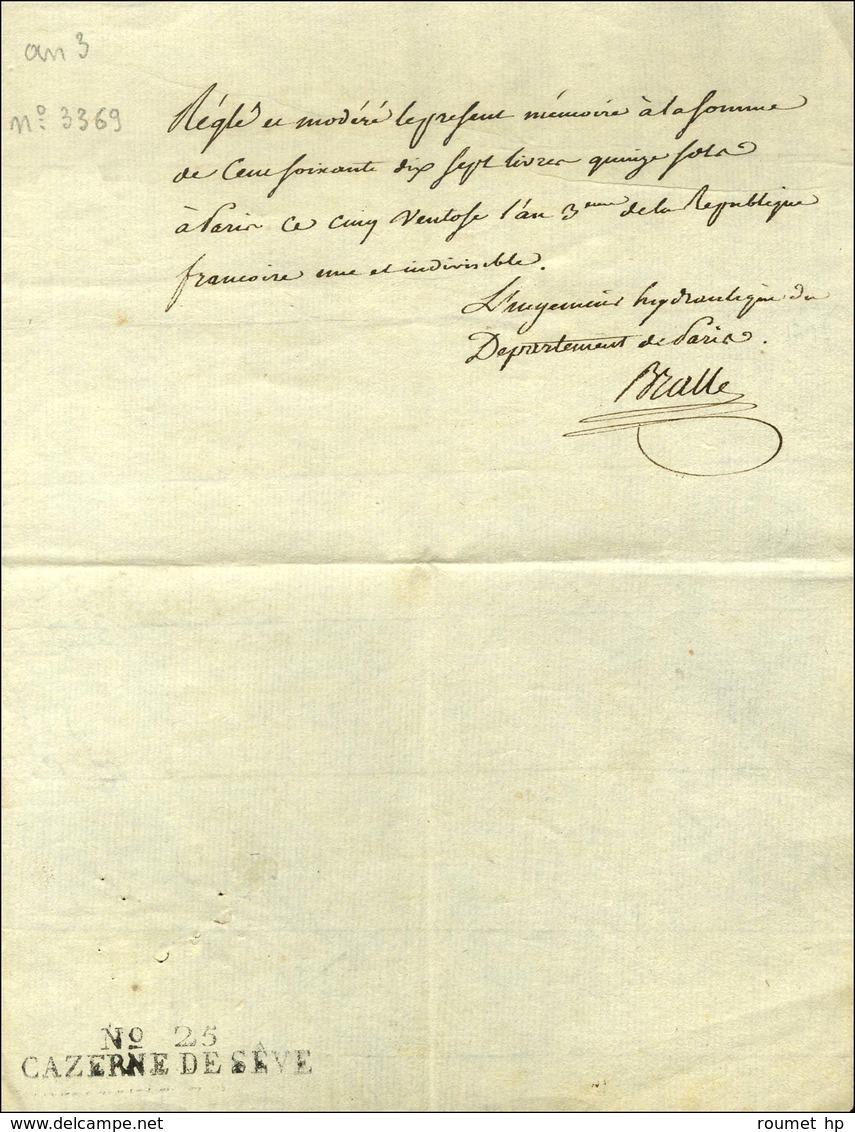 an 3
n° 3369
Réglé et modéré le present mémoire à la somme
de Cent soixante dix sept livres quinze sols
à Paris ce cinq Ventose l'an 3eme de la Republique
francoise une et indivisible.
L'ingenieur hydraulique du
Departement de Paris.
Bralle
No 25
CAZERNE DE SÊVE
roumet hp